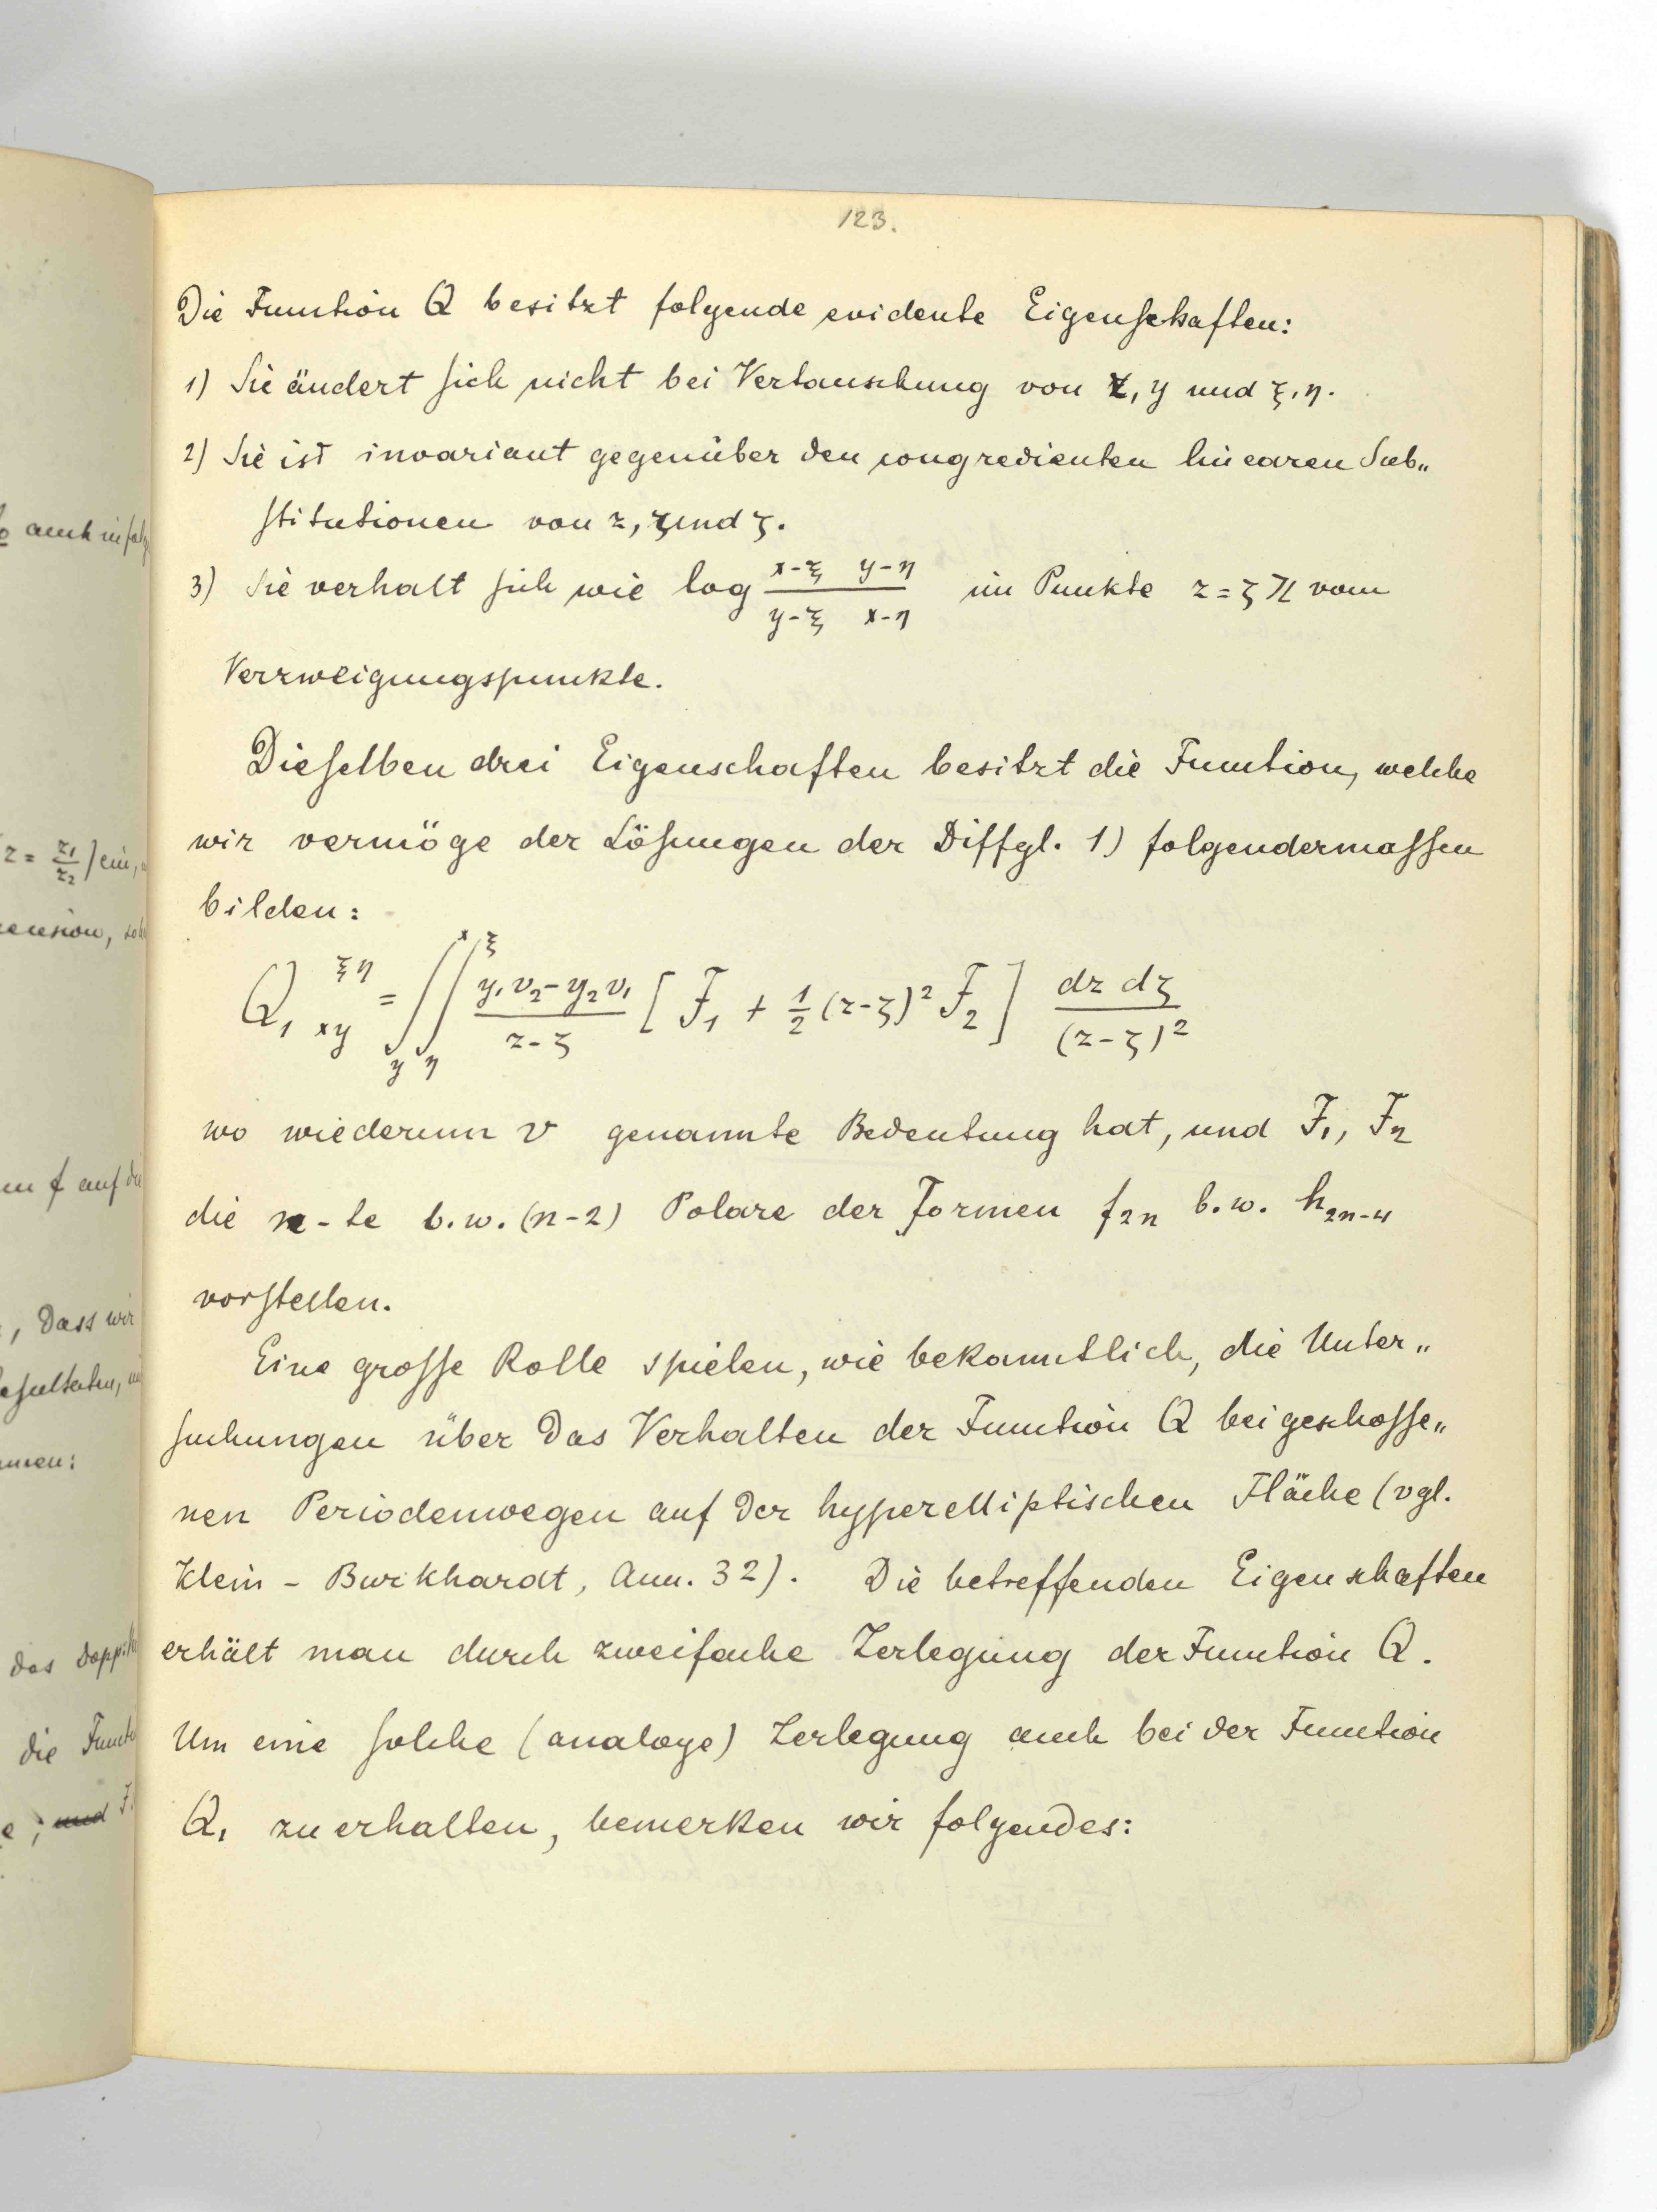 123.
Die Function Q besitzt folgende evidente Eigenschaften:
1) Sie ändert sich nicht bei Vertauschung von z, y und ξ, η.
2) Sie ist invariant gegenüber den congredienten linearen Sub„
stitutionen von z, und ζ.
3) Sie verhalt sich wie log \frac{x-ξ \quad y-η}{y-ξ \quad x-η} im Punkte z = ζ vom
Verzweigungspunkte.
Dieselben drei Eigenschaften besitzt die Function, welche
wir vermöge der Lösungen der Diffgl. 1) folgendermassen
bilden:
Q_1{}_{xy}^{ξη} = \int_y^x \int_η^ξ \frac{y_1 v_2 - y_2 v_1}{z-ζ} [ F_1 + \frac{1}{2} (z-ζ)^2 F_2 ] \frac{dz dζ}{(z-ζ)^2}
wo wiederum v genannte Bedeutung hat, und F_1, F_2
die n-te b.w. (n-2) Polare der Formen f_{2n} b.w. h_{2n-4}
vorstellen.
Eine grosse Rolle spielen, wie bekanntlich, die Unter„
suchungen über das Verhalten der Function Q bei geschosse„
nen Periodenwegen auf der hyperelliptischen Fläche (vgl.
Klein - Burkhardt, Ann. 32). Die betreffenden Eigenschaften
erhält man durch zweifache Zerlegung der Function Q.
Um eine solche (analoge) Zerlegung auch bei der Function
Q_1 zu erhalten, bemerken wir folgendes:
auch
z = \frac{z_1}{z_2}) ein,
f auf
, dass wir
das
die